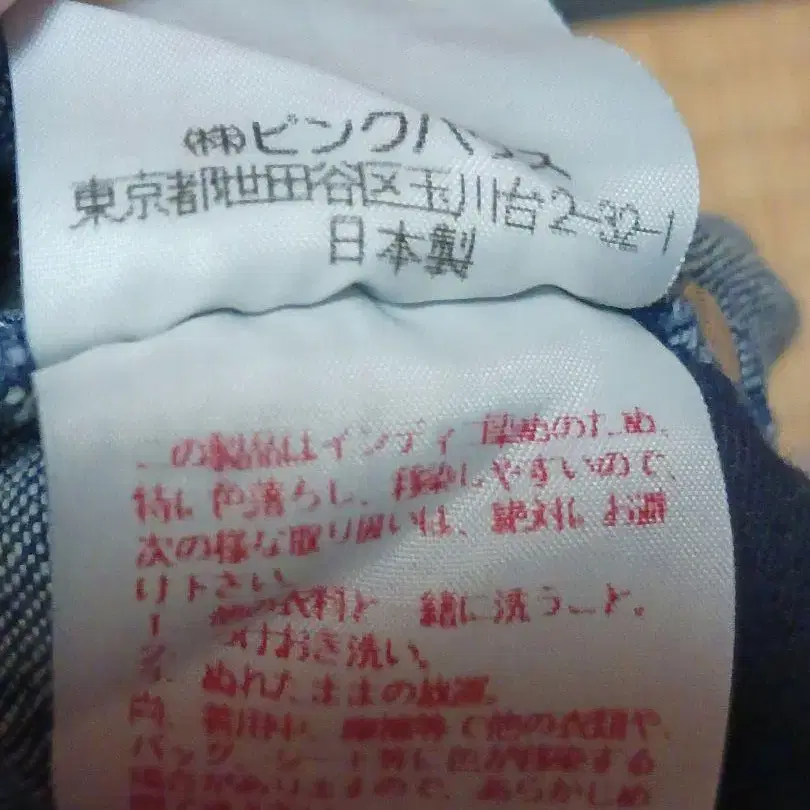 (株)ピンクハウス
東京都世田谷区玉川台2-32-1
日本製
この製品はインディ 染めのため、
特に色落ちし、移染しやすいので、
次の様な取り扱いは、絶対にお避
け下さい。
1 他の衣料と一緒に洗うこと。
2. つけおき洗い。
3. ぬれたままの放置。
尚、着用中、摩擦等で他の衣類や、
バッグ、シート等に色が移染する
場合がありますので、あらかじめ